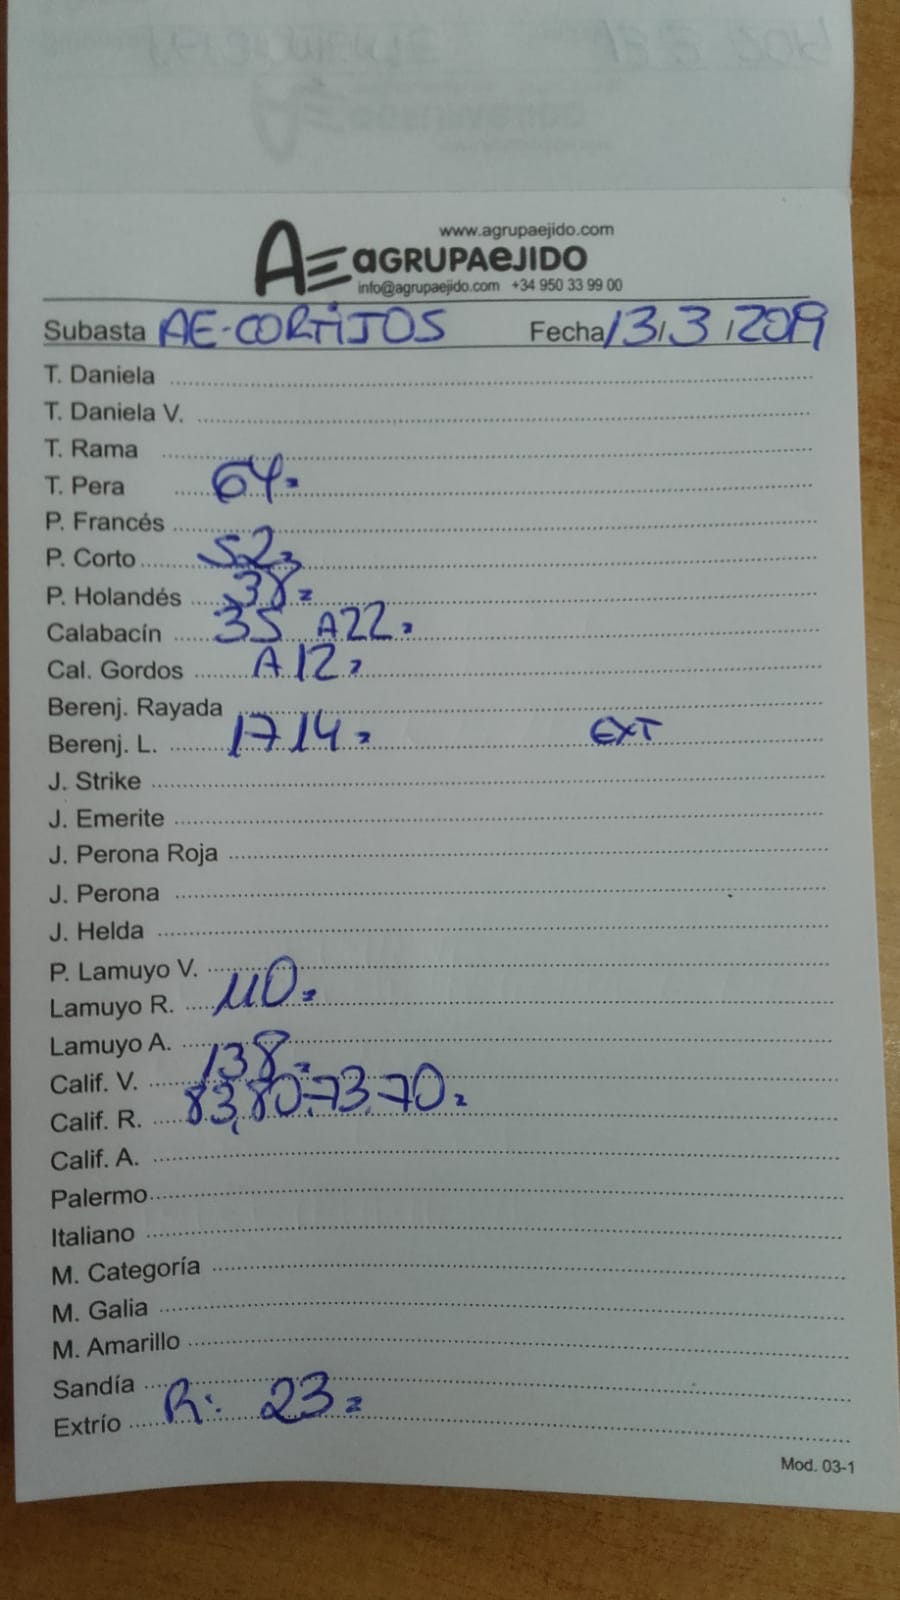 www.agrupaejido.com
AE aGRUPAeJIDO
info@agrupaejido.com +34 950 33 99 00
Subasta AE-CORTIJOS Fecha 13/3/2019
T. Daniela
T. Daniela V.
T. Rama
T. Pera 64
P. Francés
P. Corto 52
P. Holandés 38
Calabacín 35 A22
Cal. Gordos A12
Berenj. Rayada
Berenj. L. 17 14 EXT
J. Strike
J. Emerite
J. Perona Roja
J. Perona
J. Helda
P. Lamuyo V.
Lamuyo R. 110
Lamuyo A.
Calif. V. 138
Calif. R. 83,80,73,70
Calif. A.
Palermo
Italiano
M. Categoría
M. Galia
M. Amarillo
Sandía
Extrío R: 23
Mod. 03-1